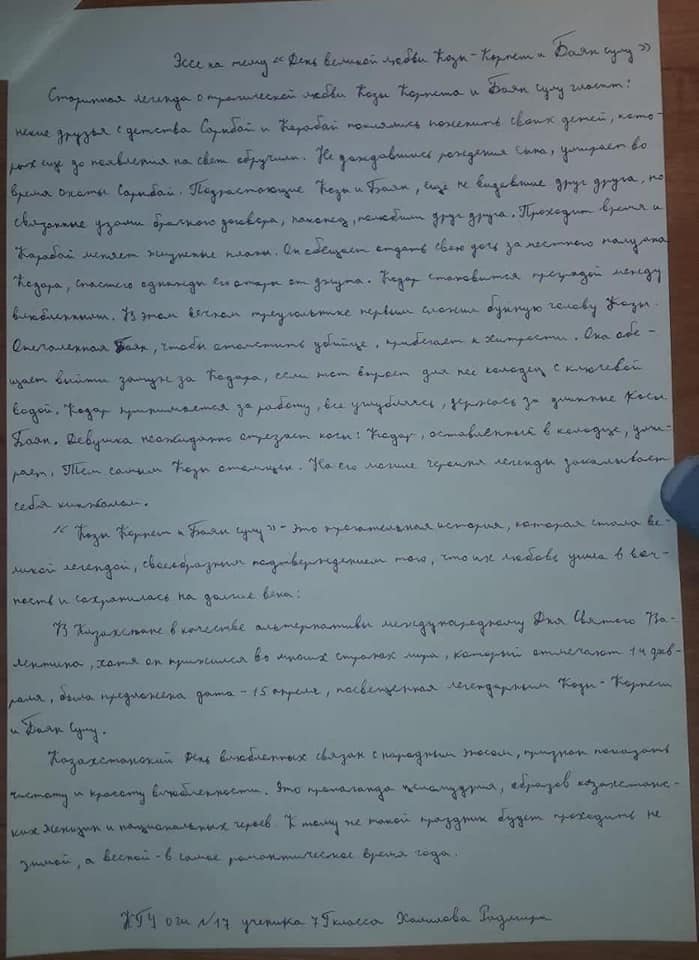 Эссе на тему «День великой любви Козы-Корпеш и Баян сулу»
Старинная легенда о трагической любви Козы Корпеша и Баян сулу гласит:
некие друзья с детства Сарыбай и Карабай поклялись поженить своих детей, кото-
рых еще до появления на свет обручили. Не дождавшись рождения сына, умирает во
время охоты Сарыбай. Подрастающие Козы и Баян, ещё не видевшие друг друга, но
связанные узами брачного договора, наконец, полюбили друг друга. Проходит время и
Карабай меняет жизненные планы. Он обещает отдать свою дочь за местного
Кодара, спасшего однажды его отары от джута. Кодар становится преградой между
влюбленными. В этом вечном треугольнике первым сложил буйную голову Козы.
Опечаленная Баян, чтобы отомстить убийце, прибегает к хитрости. Она обе-
щает выйти замуж за Кодара, если тот выроет для нее колодец с ключевой
водой. Кодар принимается за работу, все углубляясь, держась за длинные косы
Баян. Девушка неожиданно отрезает косы: Кодар, оставленный в колодце, уми-
рает. Тем самым Козы отомщен. На его могиле героиня легенды закалывает
себя кинжалом.
"Козы Корпеш и Баян сулу" - это трогательная история, которая стала ве-
ликой легендой, своеобразным подтверждением того, что их любовь ушла в веч-
ность и сохранилась на долгие века:
В Казахстане в качестве альтернативы международному Дня Святого Ва-
лентина, хотя он прижился во многих странах мира, который отмечают 14 фев-
раля, была предложена дата - 15 апреля, посвещенная легендарным Козы-Корпеш
и Баян сулу.
Казахстанский День влюбленных связан с народным эпосом, призван показать
чистоту и красоту влюбленности. Это пропаганда целомудрия, образов казахстанс-
ких женщин и национальных героев. К тому же такой праздник будет проходить не
зимой, а весной - в самое романтическое время года.
КГУ ОГИ №17 ученика 7 Г класса Халилова Радмира